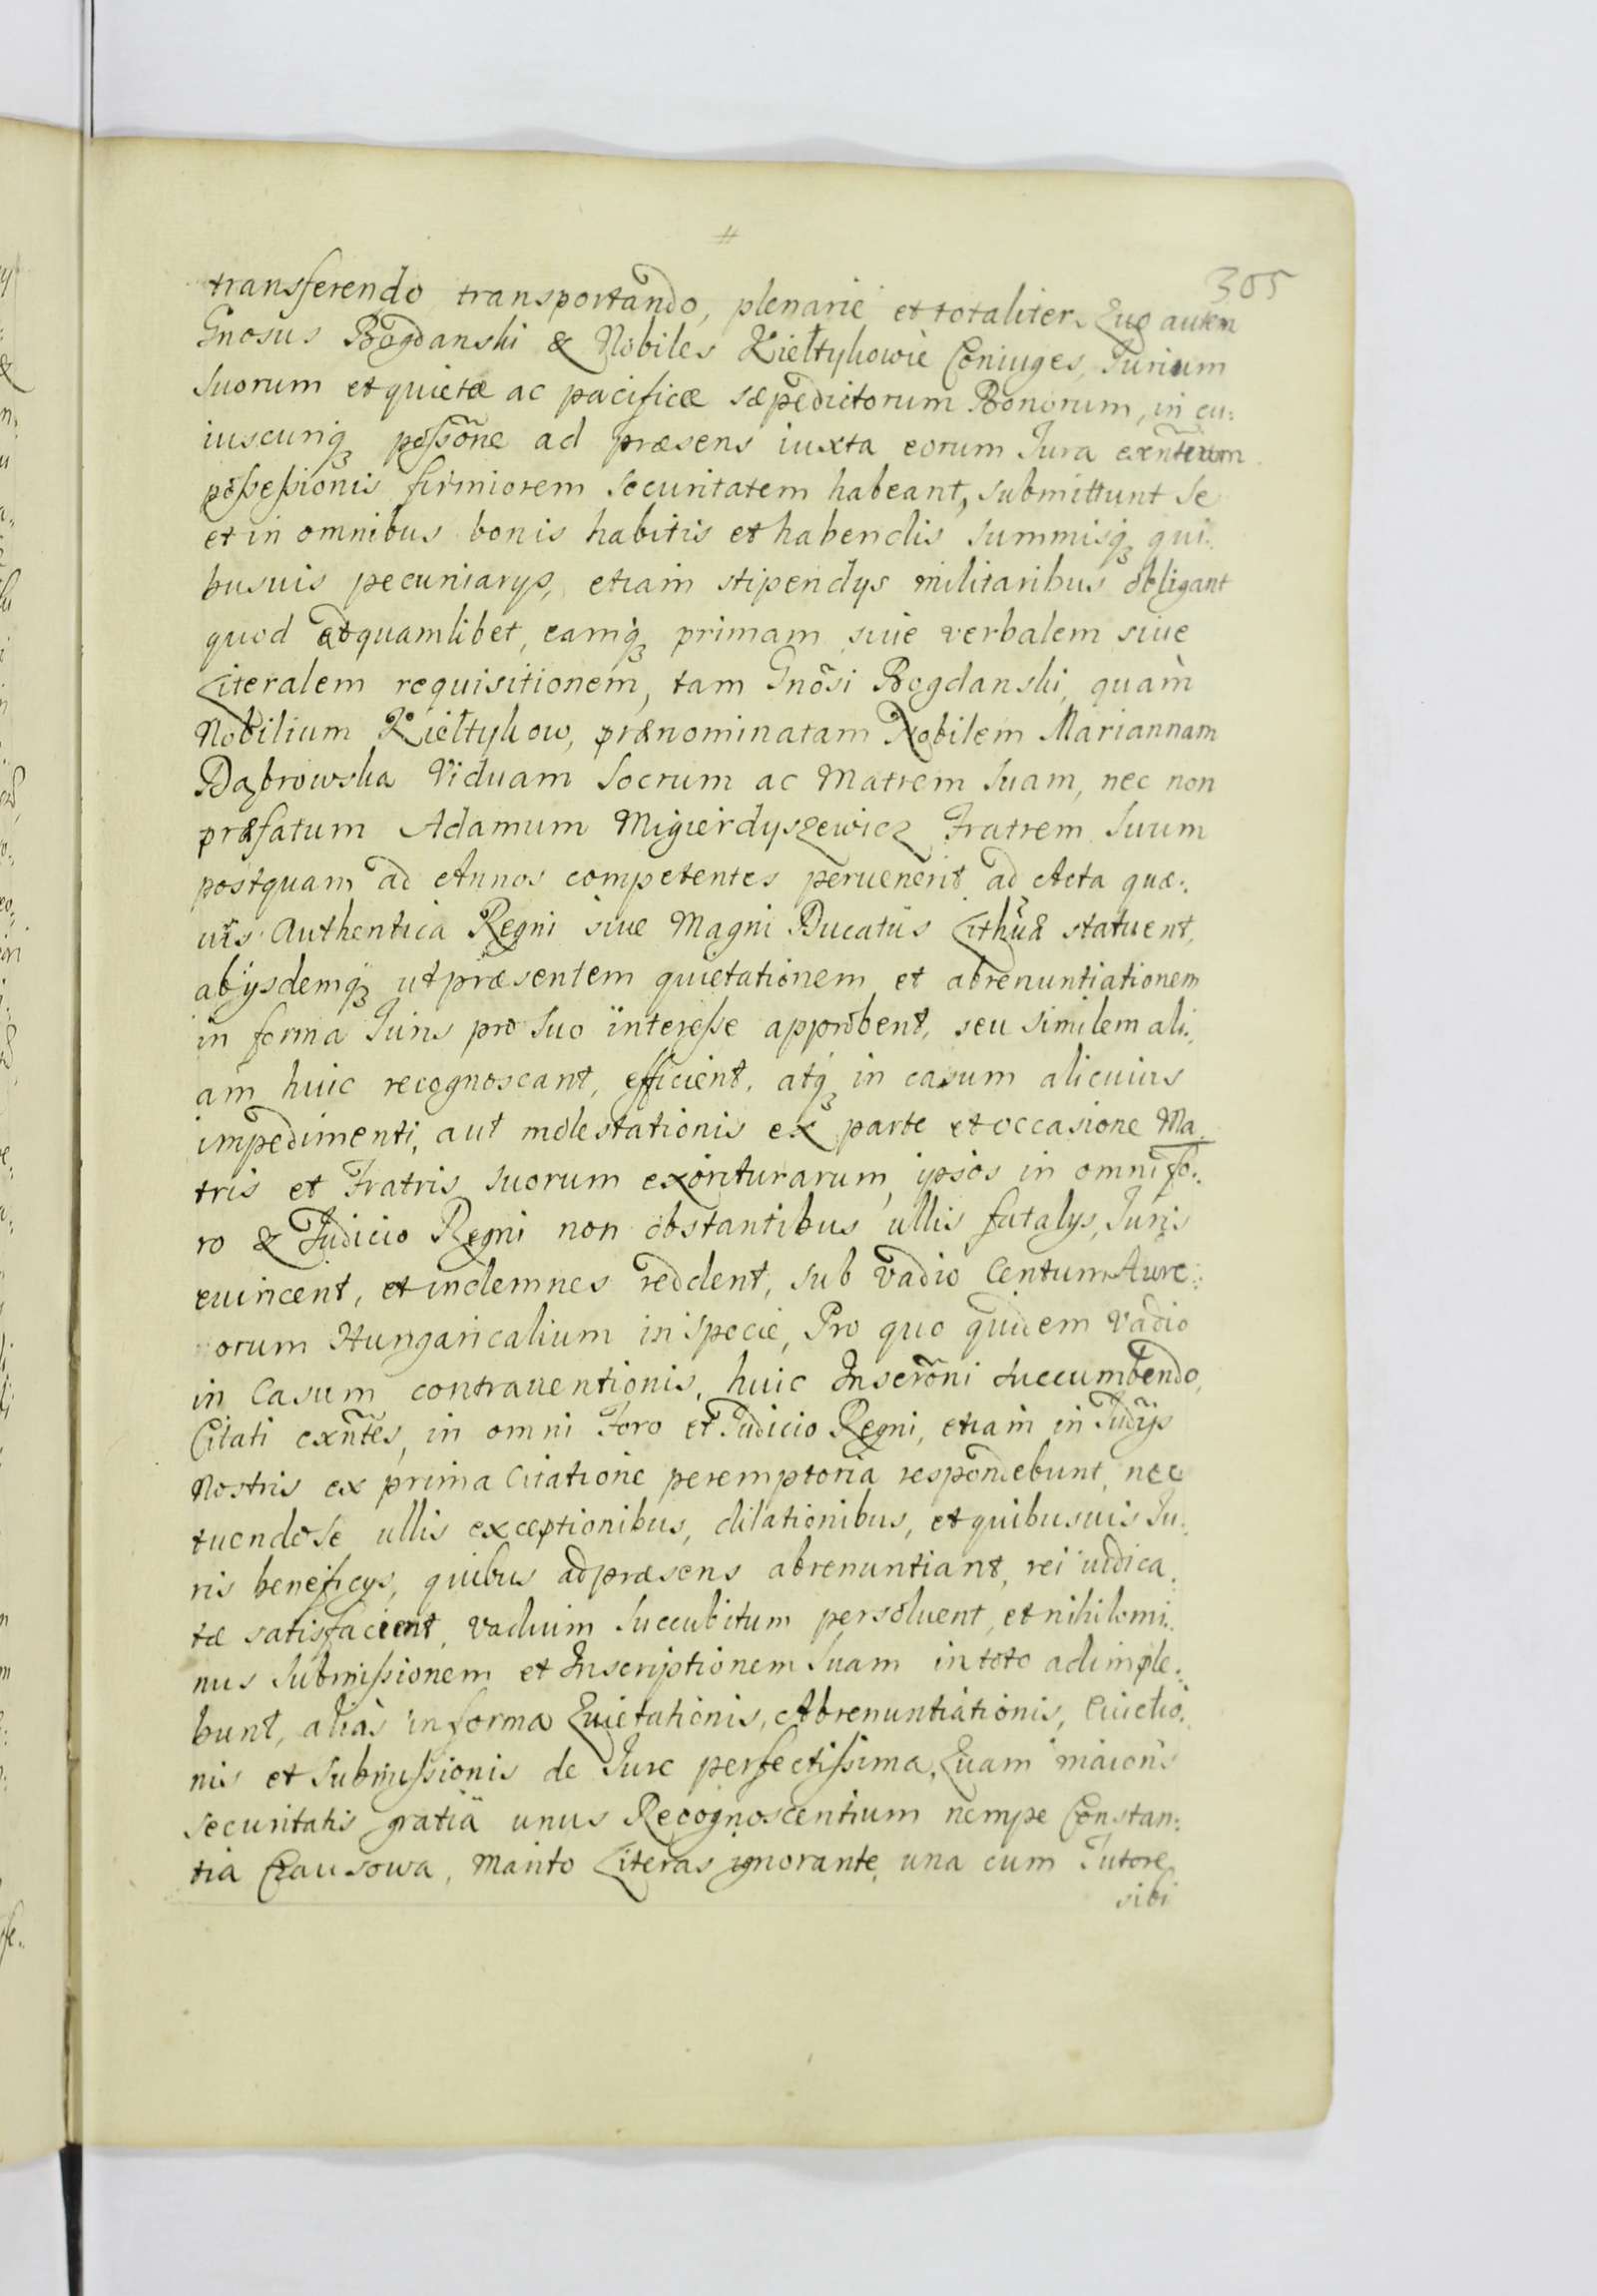 305
transferendo transportando, plenarie et totaliter. Quo autem
Gnosus Bogdanski & Nobiles Kiełtykowie Coniuges, Jurium
Suorum et quietæ ac pacificæ sæpedictorum Bonorum, in cu:
iuscunq̃ poßõne ad præsens iuxta eorum Jura exñtium
poßeßionis firmiorem securitatem habeant, submittunt se
et in omnibus bonis habitis et habendis summisq̃ qui:
busuis pecuniarys, etiam stipendys militaribus obligant
quod ad quamlibet, eamq̃ primam siue verbalem siue
Literalem requisitionem, tam Gnõsi Bogdanski, quàm
Nobilium Kiełtykow, prænominatam Nobilem Mariannam
Dąbrowska Viduam Socrum ac Matrem Suam, nec non
præfatum Adamum Migierdyszewicz Fratrem Suum
postquam ad Annos competentes peruenerit ad Acta quæ:
uis Authentica Regni siue Magni Ducatus Lithũæ statuent,
abijsdemq̃ ut præsentem quietationem et abrenuntiationem
in forma Juris pro Suo interesse approbent, seu similem ali:
am huic recognoscant, efficient, atq̃ in casum alicuius
impedimenti, aut molestationis ex parte et occasione Ma
tris et Fratris suorum exoriturarum, ipsos in omni fo:
ro & Judicio Regni non obstantibus ullis fatalys, Juris
euincent, et indemnes reddent, sub vadio Centum Aure:
orum Hungaricalium in specie, Pro quo quidem vadio
in Casum contrauentionis, huic Inscrõni succumbendo,
Citati exñtes, in omni Foro et Judicio Regni, etiam in Judijs
Nostris ex prima Citatione peremptoria respondebunt, nec
tuendo se ullis exceptionibus, dilationibus, et quibusuis Ju:
ris beneficys, quibus ad præsens abrenuntiant, rei iudica:
tæ satisfacient, vadium succubitum persoluent, et nihilomi:
nus Submißionem et Inscriptionem Suam in toto adimple:
bunt, aliàs in forma Quietationis, Abrenuntiationis, Euictio:
nis et Submißionis de Jure perfectißima, Quam maioris
securitatis gratiä unus Recognoscentium nempe Constan:
tia Czausowa, Marito Literas ignorante, una cum Tutore
sibi